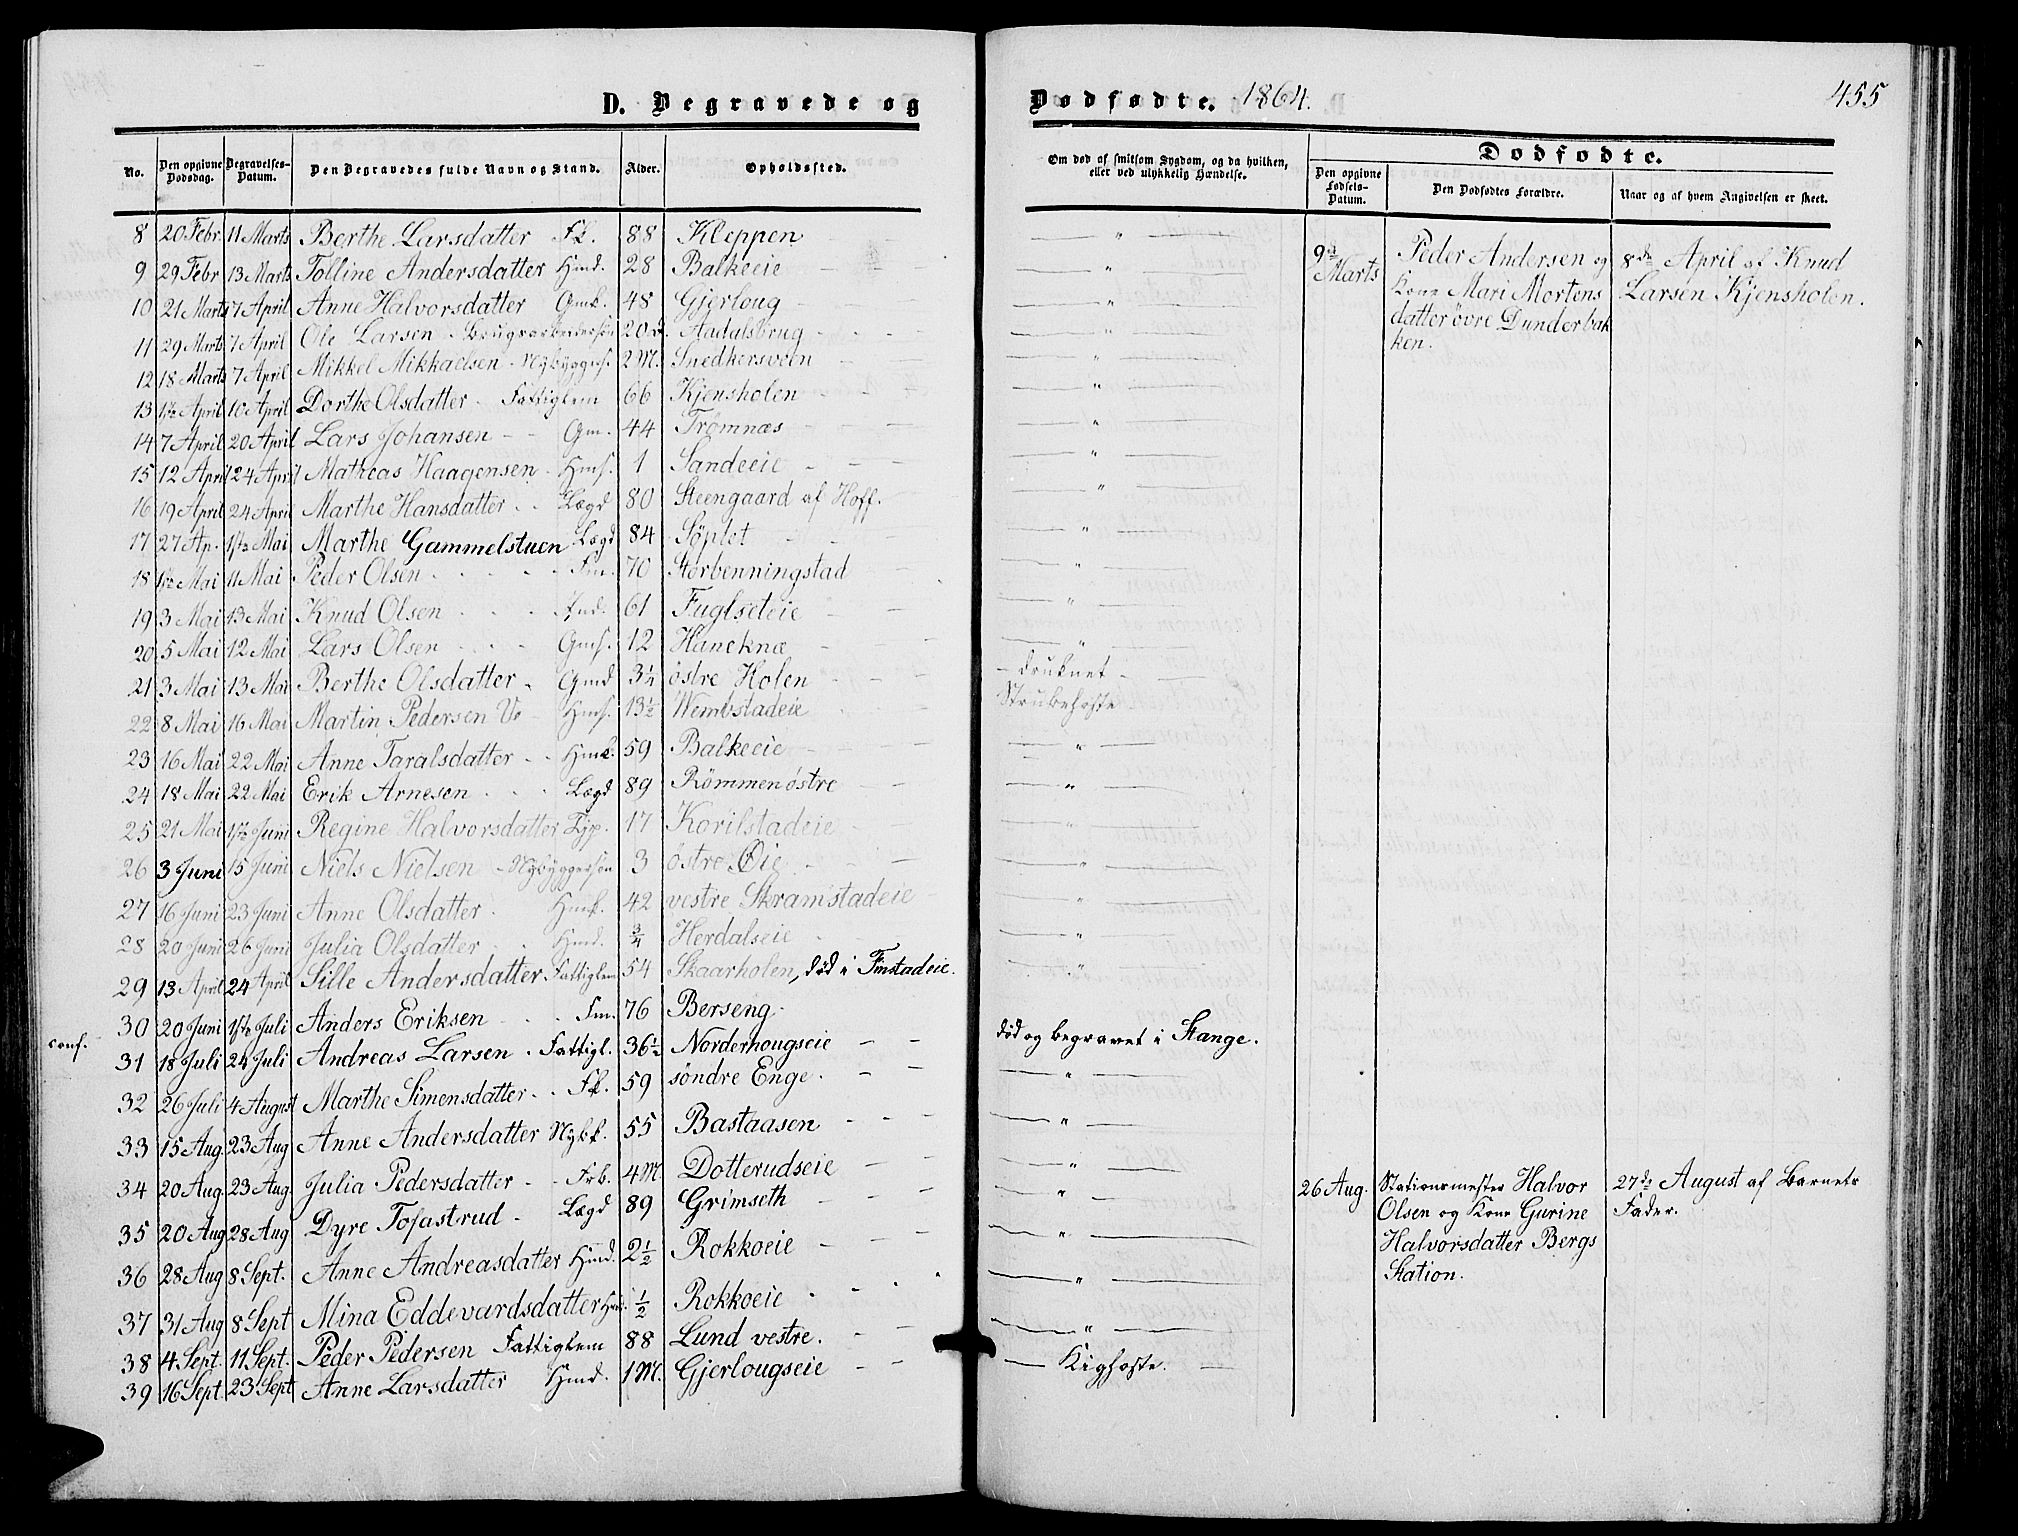 D. Begravede og Dødfødte. 1864. 455
No. Den opgivne Dødsdag. Begravelses-Datum. Den Begravedes fulde Navn og Stand. Alder. Opholdssted. Om død af smitsom Sygdom, og da hvilken, eller ved ulykkelig Hændelse. Dødfødte.
Den opgivne Fødsels-Datum. Den Dødfødtes Forældre. Naar og af hvem Angivelsen er skeet.
8 20 Febr. 11 Marts Berthe Larsdatter Fk. 88 Kleppen — " —
9 29 Febr 13 Marts Tolline Andersdatter Hmd. 28 Balkeeie — " —
10 21 Marts 7 April Anne Halvorsdatter Gmk. 48 Gjerloug — " —
11 29 Marts 7 April Ole Larsen Brugsarbeidersøn 20 d. Aadalsbrug — " —
12 18 Marts 7 April Mikkel Mikkaelsen Nybyggers. 2 M. Snedkersveen — " —
13 1ste April 10 April Dorthe Olsdatter Fattiglem 66 Kjensholen — " —
14 7 April 20 April Lars Johansen Gm. 44 Trømnæs — " —
15 12 April 24 April Matheas Haagensen Hms. 1 Sandeeie — " —
16 19 April 24 April Marthe Hansdatter Lægd 80 Steengaard af Hoff. — " —
17 27 Ap. 1ste Mai Marthe Gammelstuen Lægd 84 Søplet — " —
18 1ste Mai 11 Mai Peder Olsen Fm. 70 Storbenningstad — " —
19 3 Mai 13 Mai Knud Olsen Ind. 61 Fuglseteie — " —
20 5 Mai 12 Mai Lars Olsen Gms. 12 Haneknæ — " —
21 3 Mai 13 Mai Berthe Olsdatter Gmd 3¼ østre Holen — druknet —
22 8 Mai 16 Mai Martin Pedersen Hms. 13½ Wembstadeie Strubehoste
23 16 Mai 22 Mai Anne Taralsdatter Hmk. 59 Balkeeie — " —
24 18 Mai 22 Mai Erik Arnesen Lægd 89 Rømmen østre — " —
25 21 Mai 1ste Juni Regine Halvorsdatter Tjp. 17 Korilstadeie — " —
26 3 Juni 15 Juni Niels Nielsen Nybyggersøn 3 østre Øie — " —
27 16 Juni 23 Juni Anne Olsdatter Hmk. 42 vestre Skramstadeie — " —
28 20 Juni 26 Juni Julia Olsdatter Hmd. ¾ Herdalseie — " —
29 13 April 24 April Sille Andersdatter Fattiglem 54 Skaarholen, død i Finstadeie. — " —
30 20 Juni 1ste Juli Anders Eriksen Fm. 76 Berseng
conf. 31 18 Juli 24 Juli Andreas Larsen Fattigl. 36½ Norderhougseie død og begravet i Stange.
32 26 Juli 4 August Marthe Simensdatter Fk. 59 søndre Enge — " —
33 15 Aug. 23 Aug Anne Andersdatter Nybk. 55 Bastaasen — " —
34 20 Aug. 23 Aug. Julia Pedersdatter Frb. 4 M. Dotterudseie — " —
35 20 Aug 28 Aug Dyre Tofastrud Lægd 89 Grimseth — " —
36 28 Aug 8 Sept. Anne Andreasdatter Hmd. 2½ Rokkoeie — " —
37 31 Aug 8 Sept Mina Eddevardsdatter Hmd. ½ Rokkoeie — " —
38 4 Sept. 11 Sept. Peder Pedersen Fattiglem 88 Lund vestre. — " —
39 16 Sept. 23 Sept Anne Larsdatter Hmd. 1 M. Gjerlougseie — Kighoste. —
9de Marts Peder Andersen og
Kone Mari Mortens
datter øvre Dunderbak
ken.
8de April af Knud
Larsen Kjensholen.
26 Aug. Stationsmester Halvor
Olsen og Kone Gurine
Halvorsdatter Bergs
Station.
27de August af Barnets
Fader.